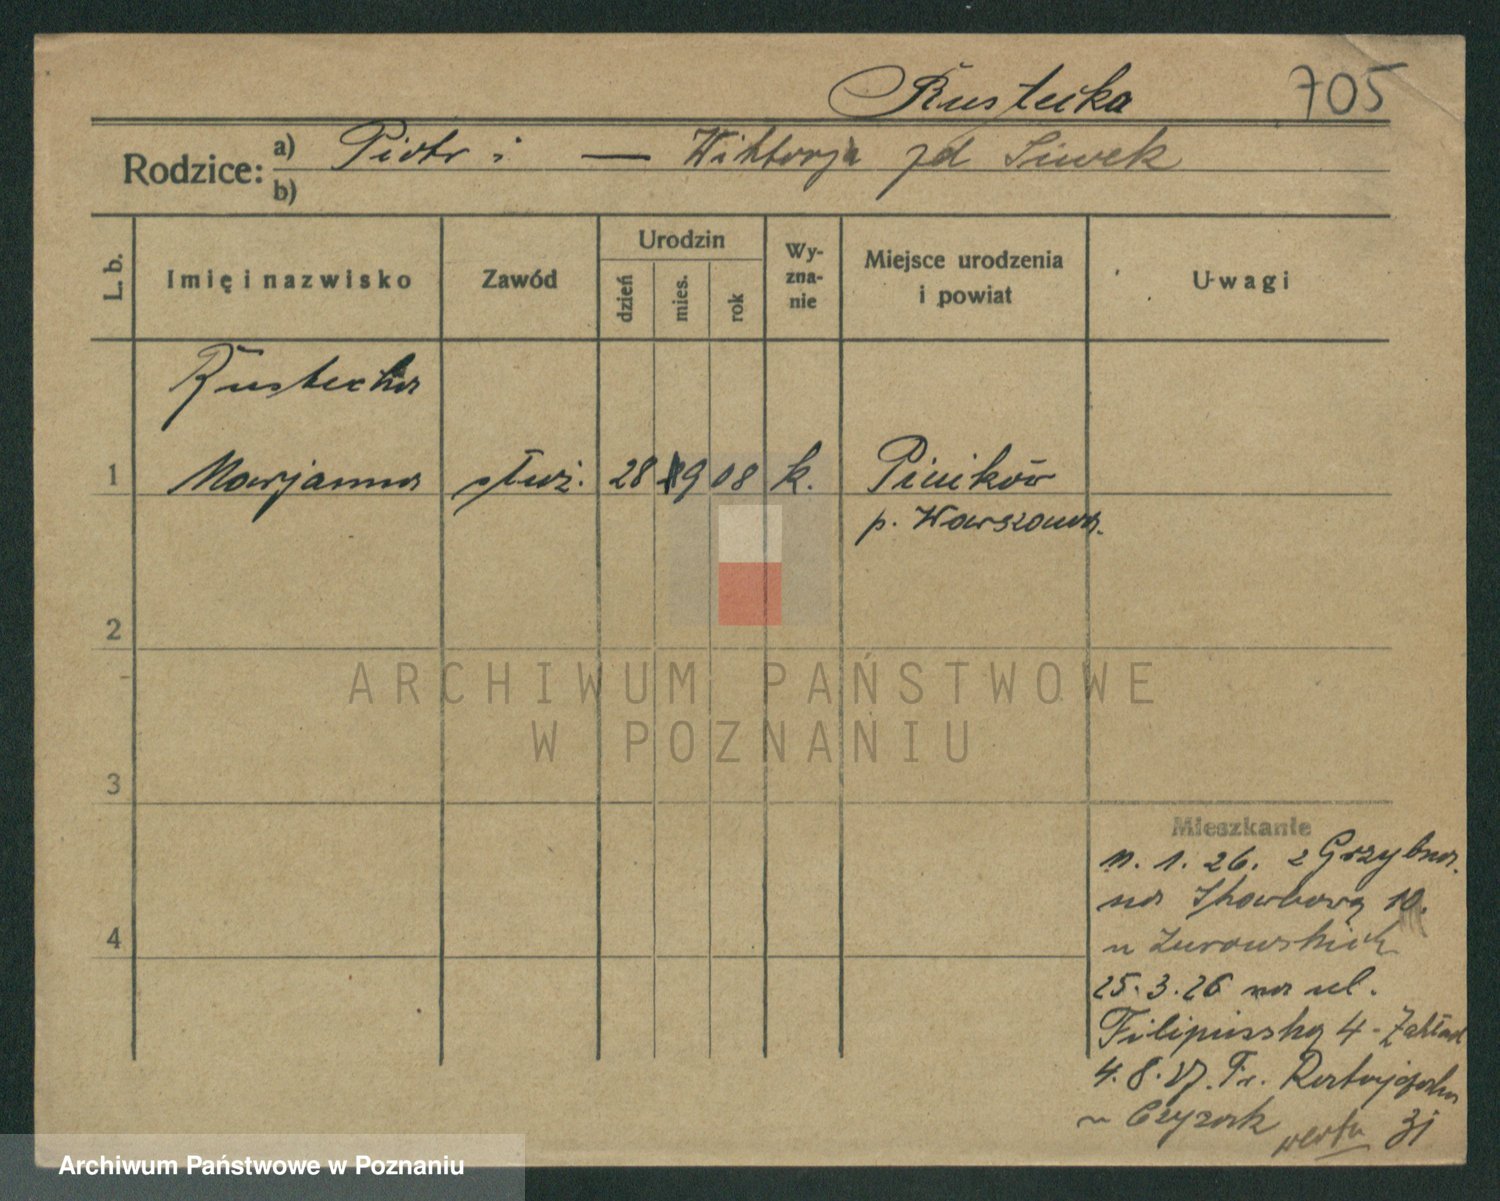 Rustecka 705
Rodzice: a) Piotr i — Wiktorja zd Siwek
b)
L. b.
Imię i nazwisko
Zawód
Urodzin
dzień
mies.
rok
Wy-
zna-
nie
Miejsce urodzenia
i powiat
Uwagi
Rustecka
1 Marjanna służ. 28 9 08 k. Piników
p. Warszawa.
2
ARCHIWUM PAŃSTWOWE
W POZNANIU
3
Mieszkanie
1. 26. z Grzybna.
na Skarbową 10.
u Żurowskich
25. 3. 26 na ul.
Filipińską 4 - Zakład
4. 8. 27. Fr. Ratajczaka
4
u Czyzak 31
Archiwum Państwowe w Poznaniu